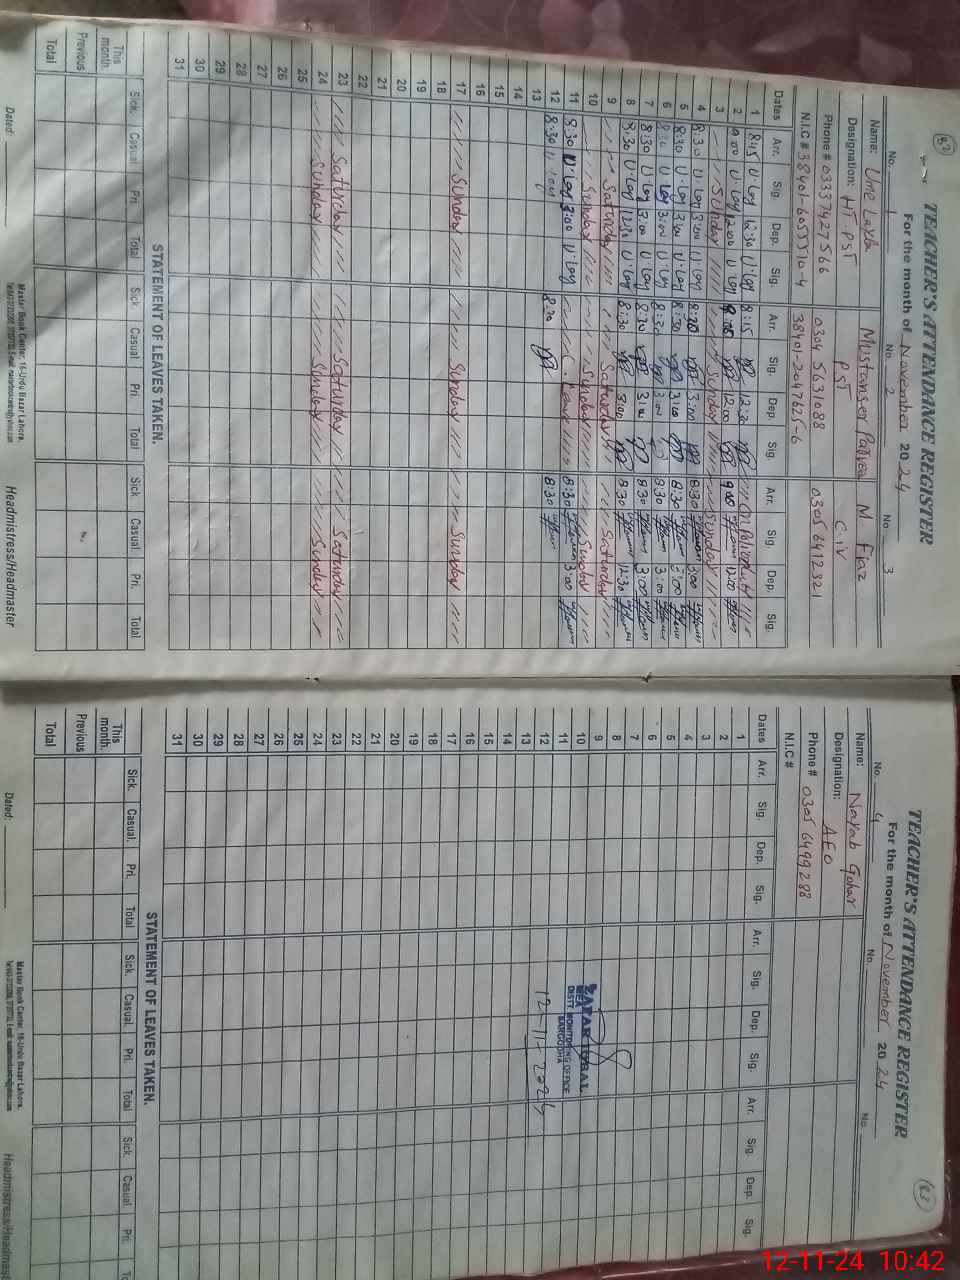 82
TEACHER'S ATTENDANCE REGISTER
For the month of November 2024
No. 1 No. 2 No. 3
Name: Ume Layla Mustansar M. Fiaz
Designation: HT. PST PST C-iv
Phone # 03337427566 0304 5631088 0305 6412321
N.I.C # 38401-6055510-4 38401-2047625-6
Dates Arr. Sig. Dep. Sig. Arr. Sig. Dep Sig. Arr. Sig. Dep. Sig.
1 8:15 U.Lay 12:30 U.Lay 8:15 12:30 On Polio duty
2 9:00 U.Lay 12:00 U.Lay 9:00 12:00 9:00 12:00
3 Sunday Sunday Sunday
4 8:30 U.Lay 3:00 U.Lay 8:30 3:00 8:30 3:00
5 8:30 U.Lay 3:00 U.Lay 8:30 3:00 8:30 3:00
6 8:30 U.Lay 3:00 U.Lay 8:30 3:00 8:30 3:00
7 8:30 U.Lay 3:00 U.Lay 8:30 3:00 8:30 3:00
8 8:30 U.Lay 12:30 U.Lay 8:30 3:00 8:30 12:30
9 Saturday Saturday Saturday
10 Sunday Sunday Sunday
11 8:30 U.Lay 3:00 U.Lay C. Leave 8:30 3:00
12 8:30 U.Lay 8:30 8:30
13
14
15
16
17 Sunday Sunday Sunday
18
19
20
21
22
23 Saturday Saturday Saturday
24 Sunday Sunday Sunday
25
26
27
28
29
30
31
STATEMENT OF LEAVES TAKEN.
Sick. Casual Pri. Total Sick. Casual Pri. Total Sick. Casual Pri. Total
This month.
Previous
Total
Master Book Center, 16-Urdu Bazar Lahore.
Dated: Headmistress/Headmaster
83
TEACHER'S ATTENDANCE REGISTER
For the month of November 2024
No. 4 No. No.
Name: Nayab Gohar
Designation: AEO
Phone # 0305 6499288
N.I.C #
Dates Arr. Sig. Dep. Sig. Arr. Sig. Dep. Sig. Arr. Sig. Dep. Sig.
1
2
3
4
5
6
7
8
9
10
11
12
13
14
15
16
17
18
19
20
21
22
23
24
25
26
27
28
29
30
31
ZAFAR IQBAL
MEA
DISTT MONITORING OFFICE
SARGODHA
12-11-2024
STATEMENT OF LEAVES TAKEN.
Sick. Casual. Pri. Total Sick. Casual. Pri. Total Sick. Casual Pri.
This month.
Previous
Total
Master Book Center, 16-Urdu Bazar Lahore.
Dated: Headmistress/Headmaster
12-11-24 10:42